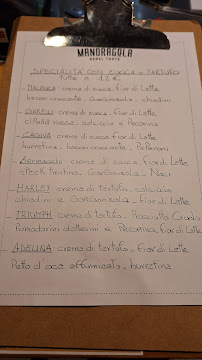 MANDRAGOLA
SPECIALITA' CON ZUCCA e TARTUFO
Tutte a 12 €
crema di zucca fior di Latte
bacon croccante, Gorgonzola, chiodini
crema di zucca, fior di Latte
salsiccia e Pecorino
CAGIVA crema di zucca fior di Latte
burratina, bacon croccante, Peperoni
crema di zucca, fior di Latte
speck Gorgonzola, Noci
HARLEY crema di tartufo, salsiccia
chiodini e Gorgonzola, fior di Latte
TRIUMPH crema di tartufo, Prosciutto Crudo
Pomodorini e Pecorino, fior di Latte
ADELINA crema di tartufo, Fior di Latte
Petto d'oca affumicato, burratina